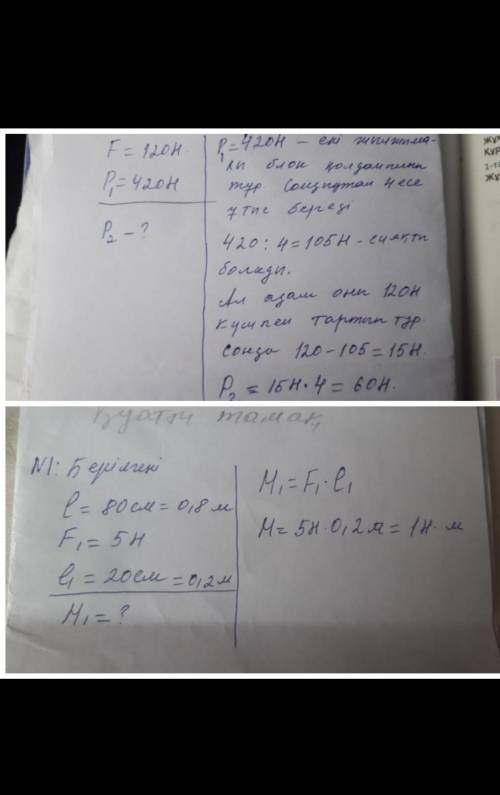 F = 120Н
P₁ = 420Н
P₂ - ?
P₁ = 420Н - екі жылжыма-
лы блок қолданылып
тұр. Сондықтан 4 есе
ұтыс береді
420 : 4 = 105Н - сияқты
болады.
Ал адам оны 120Н
күшпен тартып тұр
сонда 120 - 105 = 15Н.
P₂ = 15Н · 4 = 60Н.
ЖҰ
КҮР
ЖҰ
Қуатты тамақ
N1: Берілгені
l = 80см = 0,8 м
F₁ = 5Н
l₁ = 20см = 0,2м
M₁ = ?
M₁ = F₁ · l₁
M = 5Н · 0,2м = 1Н · м